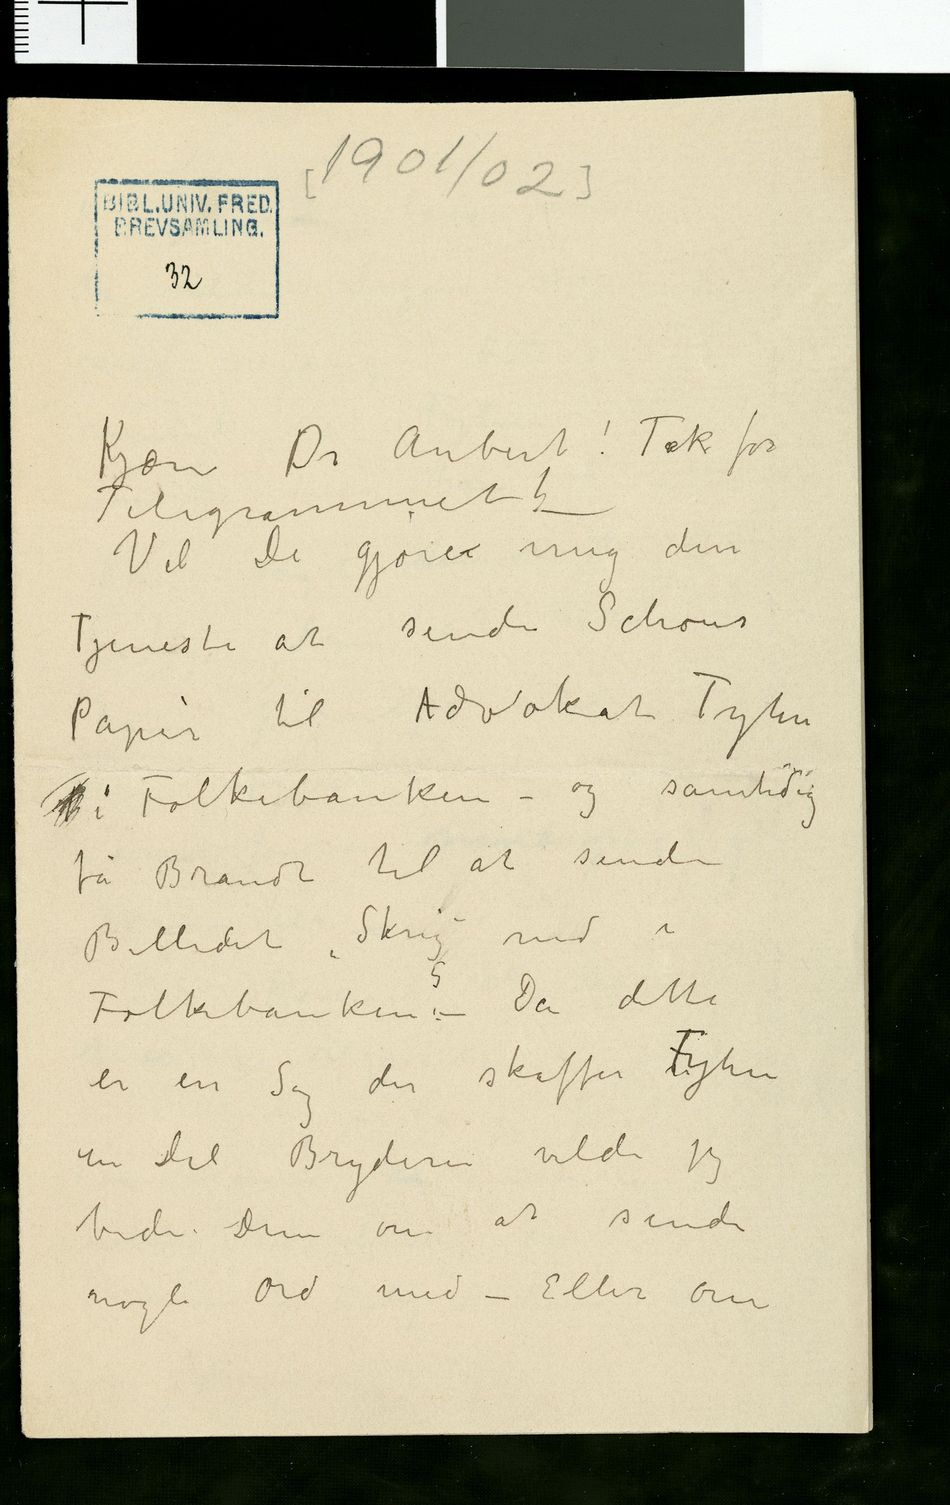 [1901/02]
BIBL.UNIV. FRED.
BREVSAMLING.
32
Kjære Dr Aubert! Tak for
Telegrammet! –
Vil De gjøre mig den
Tjeneste at sende Schous
Papir til Advokat Tyhn
i Folkebanken – og samtidig
få Brandt til at sende
Billedet „Skrig" ned i
Folkebanken – Da dette
er en Sag der skaffer Tyhn
en Del Bryderi vilde jeg
bede Dem om at sende
nogle Ord med – Eller om